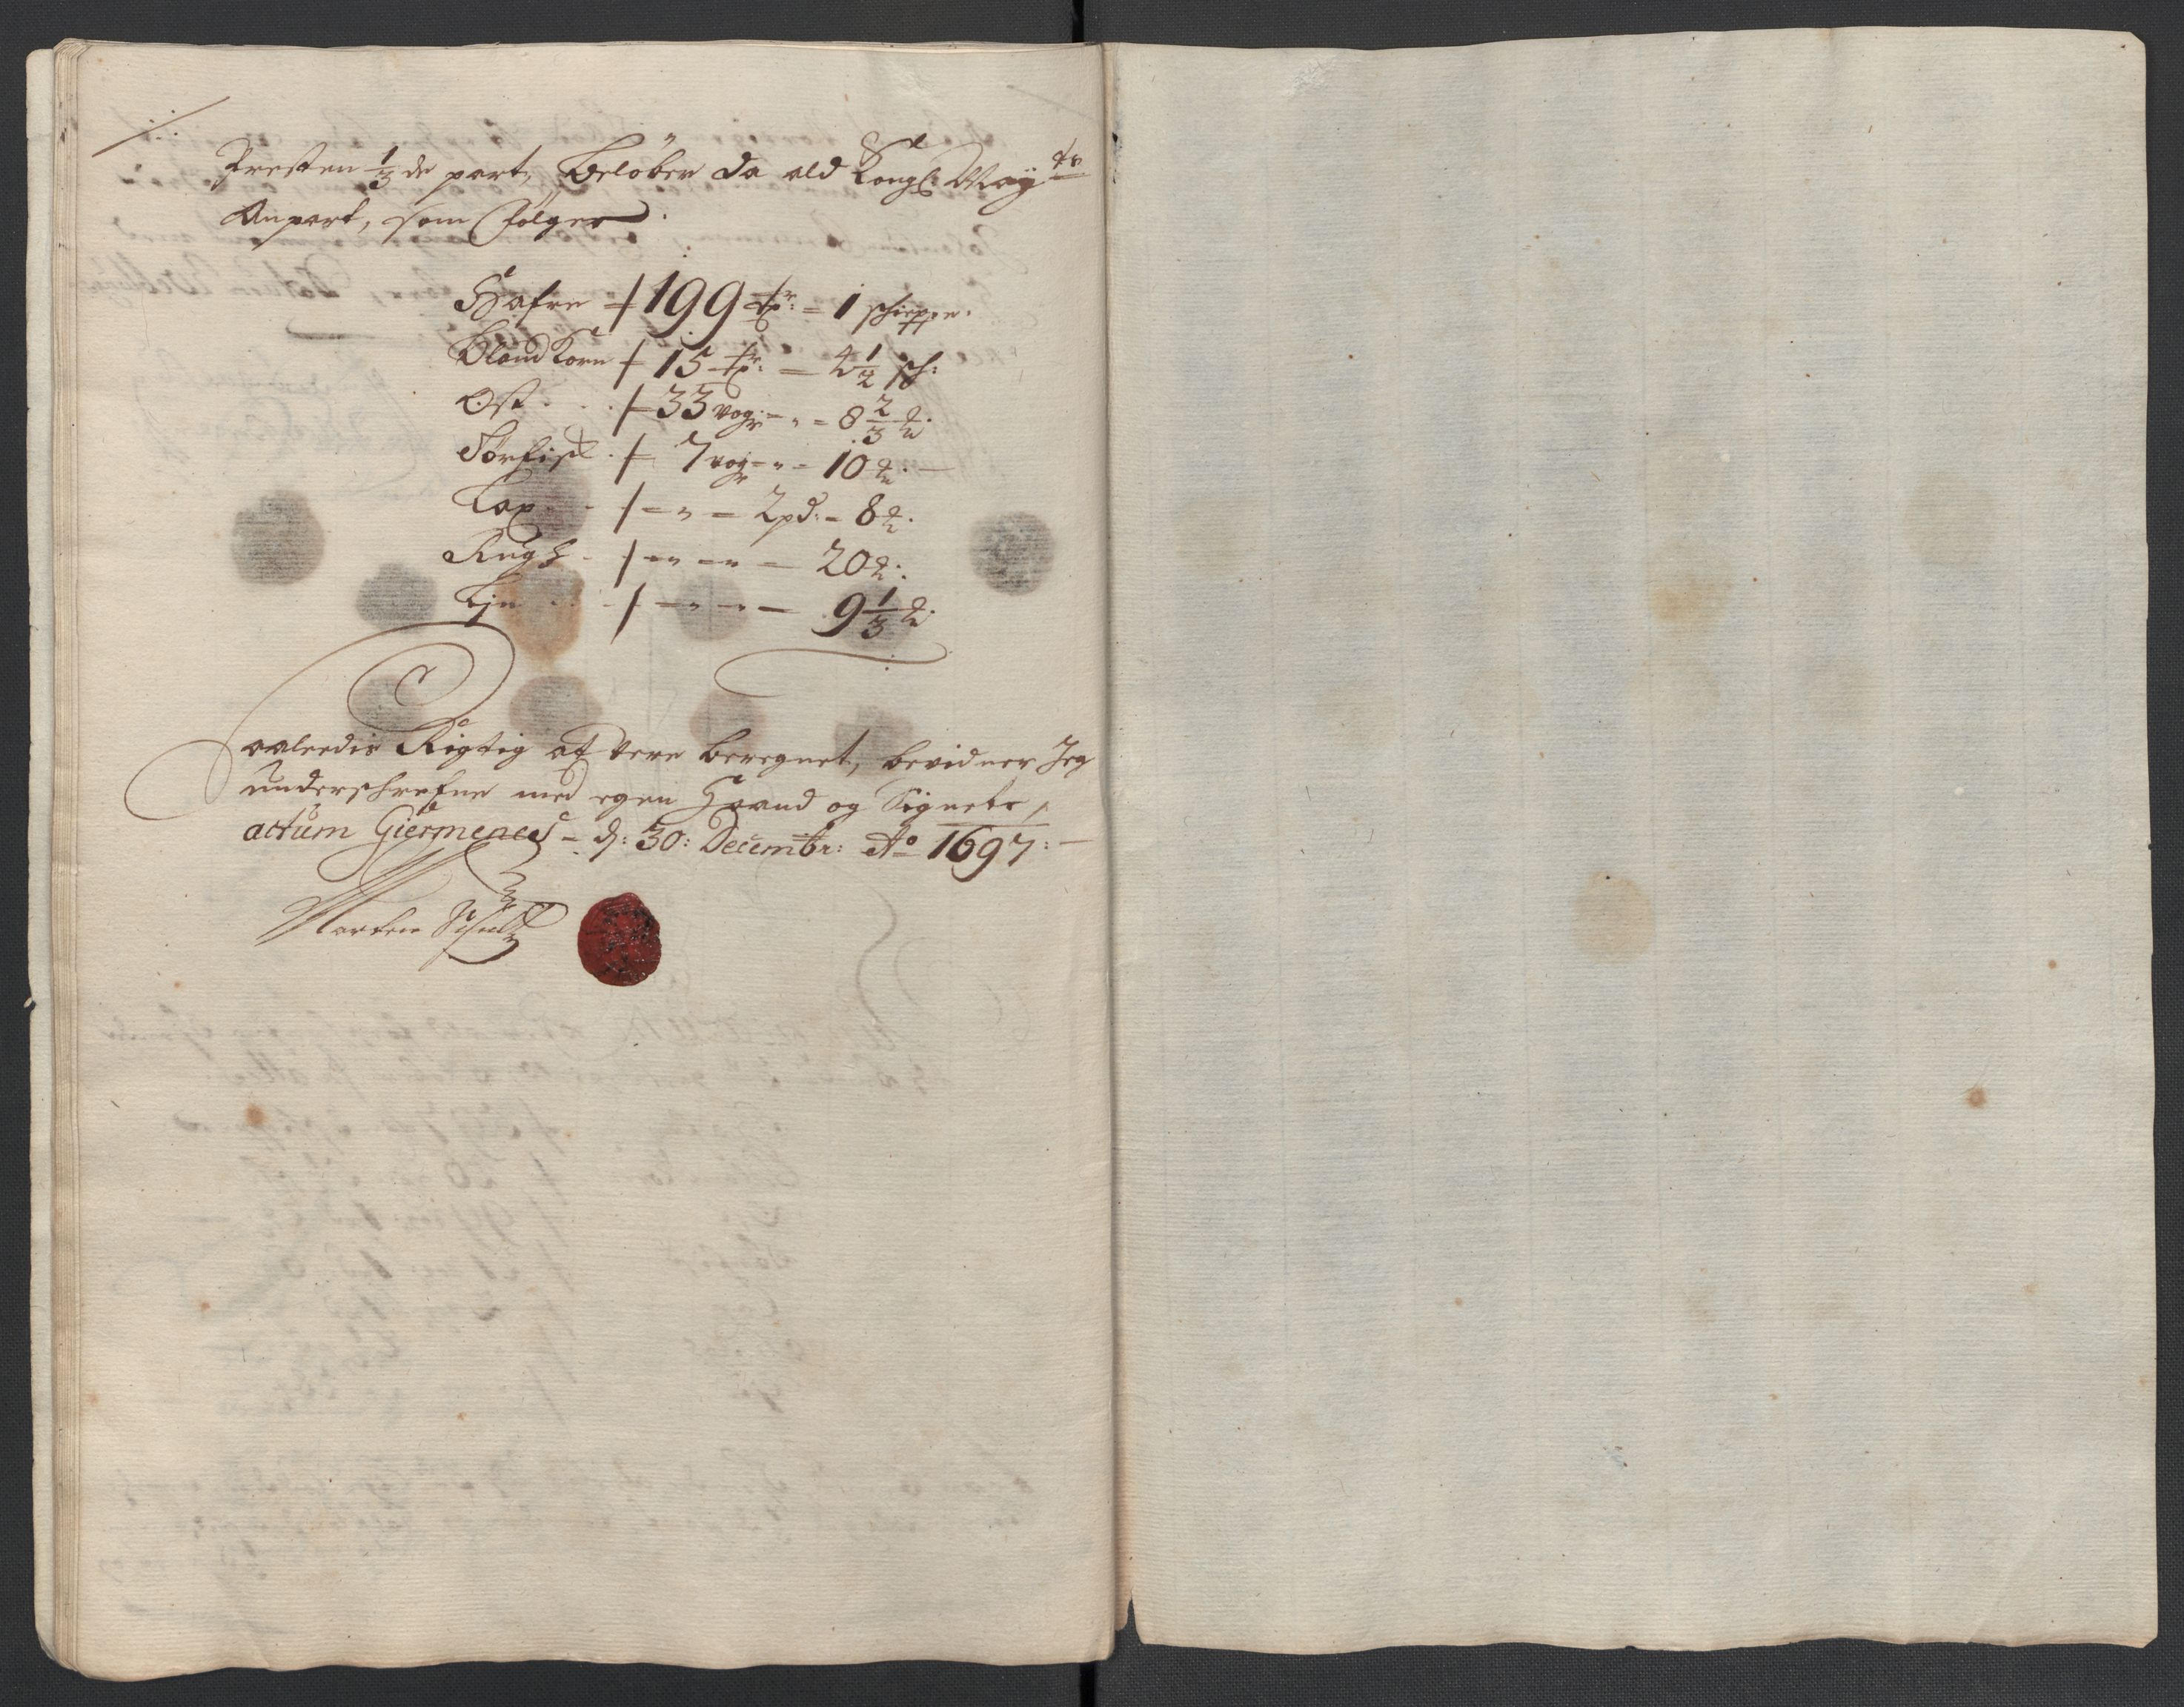 Presten 1/3 de part, Beløber da ald Kongl: May.ts
Anpart, som følger.
Hafre + 199 tr: = 1 schieppe.
Bland Korn + 15 tr: = 4 1/2 sch:
Ost . . + 33 vogr - " = 8 2/3 ℔.
Tørfisk . + 7 vogr = " = 10 ℔.
Lax . . + - " = 2 pd: = 8 ℔.
+ - " - " = 20 ℔.
+ - " - " - 9 1/3 ℔.
Saaledis Rigtig at vere beregnet, bevidner Jeg
underschrefne med egen Haand og Signete,
actum - d: 30: Decembr: Ao 1697:
Morten Schultz